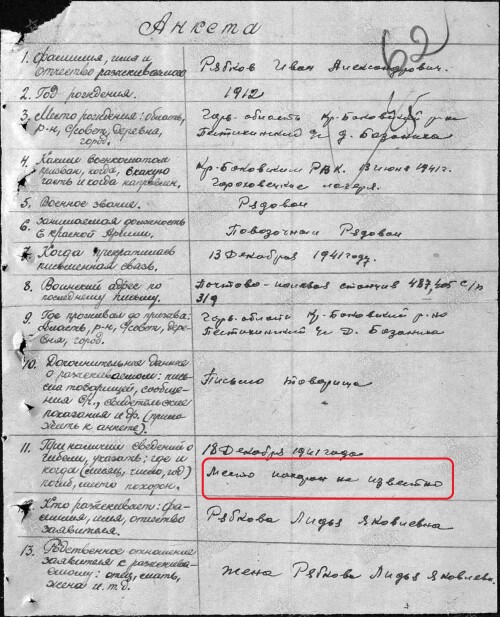 Анкета
62
1. Фамилия, имя и
отчество разыскиваемого
Рябков Иван Александрович.
2. Год рождения.
1912
3. Место рождения: область,
р-н, с/совет, деревня,
город.
Горь. область Кр-Баковский р-на
д. Базаниха
4. Каким военкоматом
призван, когда, в какую
часть и когда направлен.
Кр-Баковским РВК. июня 1941 г.
Гороховецкие лагеря.
5. Военное звание.
Рядовой
6. Занимаемая должность
в Красной Армии.
Повозочный Рядовой
7. Когда прекратилась
письменная связь.
13 Декабря 1941 году.
8. Воинский адрес по
последнему письму.
Почтово-полевая станция 487, 405 с/п
9. Где проживал до призыва:
область, р-н, с/совет, дере-
вня, город.
Горь. область Кр-Баковский р-но
Д. Базаниха
10. Дополнительные данные
о разыскиваемом: пись-
ма товарищей, сообще-
ния в/ч, свидетельские
показания и др. (прило-
жить к анкете).
Письмо товарища
11. При наличии сведений о
гибели, указать: где и
когда (месяц, число, год)
погиб, место похорон.
18 Декабря 1941 года.
Место похорон не известно
Кто разыскивает: фа-
милия, имя, отчество
заявителя.
Рябкова Лидья Яковлевна
13. Родственное отношение
заявителя с разыскива-
емому: отец, мать,
жена и т.д.
Жена Рябкова Лидья Яковлевн.